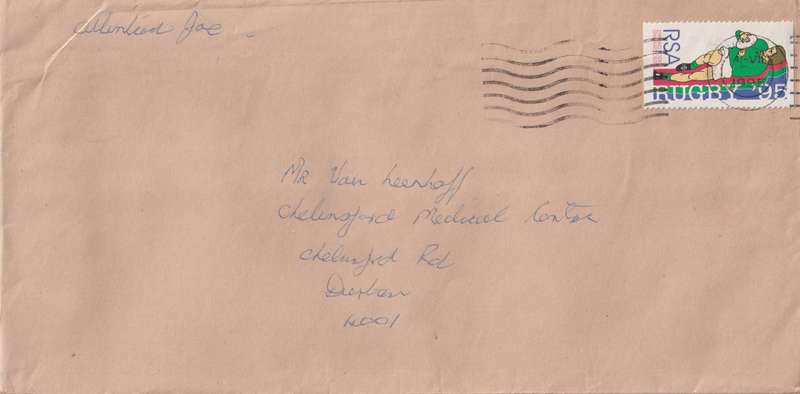 Attention Joe
RSA
1995
RUGBY '95
Mr Van Leenhoff
Chelmsford Medical Centre
Chelmsford Rd
Durban
4001